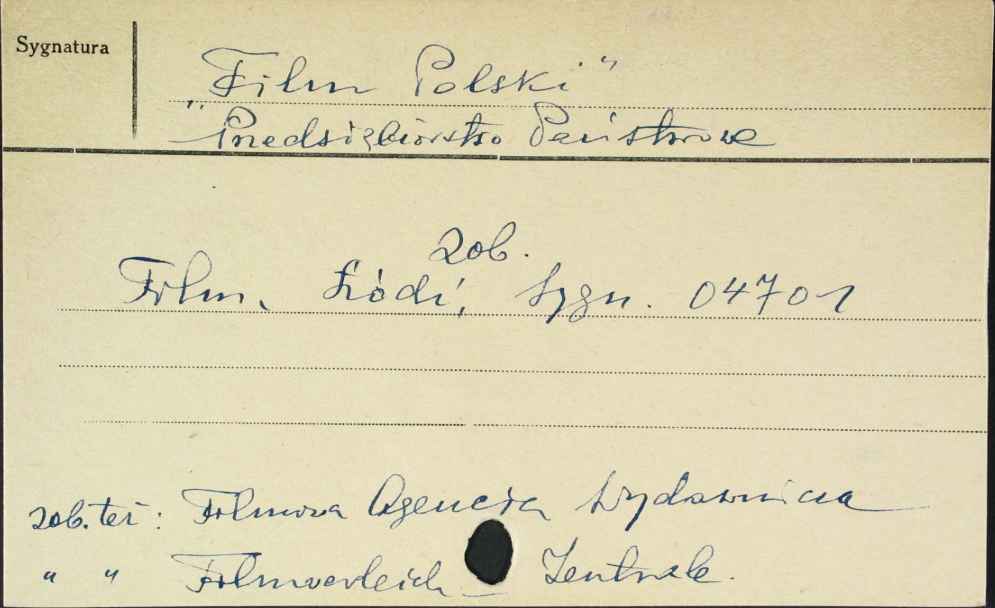 Sygnatura
"Film Polski"
Przedsiębiorstwo Państwowe
zob.
Film, Łódź, Sygn. 04701
zob. też: Filmowa Agencja Wydawnicza
" " Filmverleih - Zentrale.